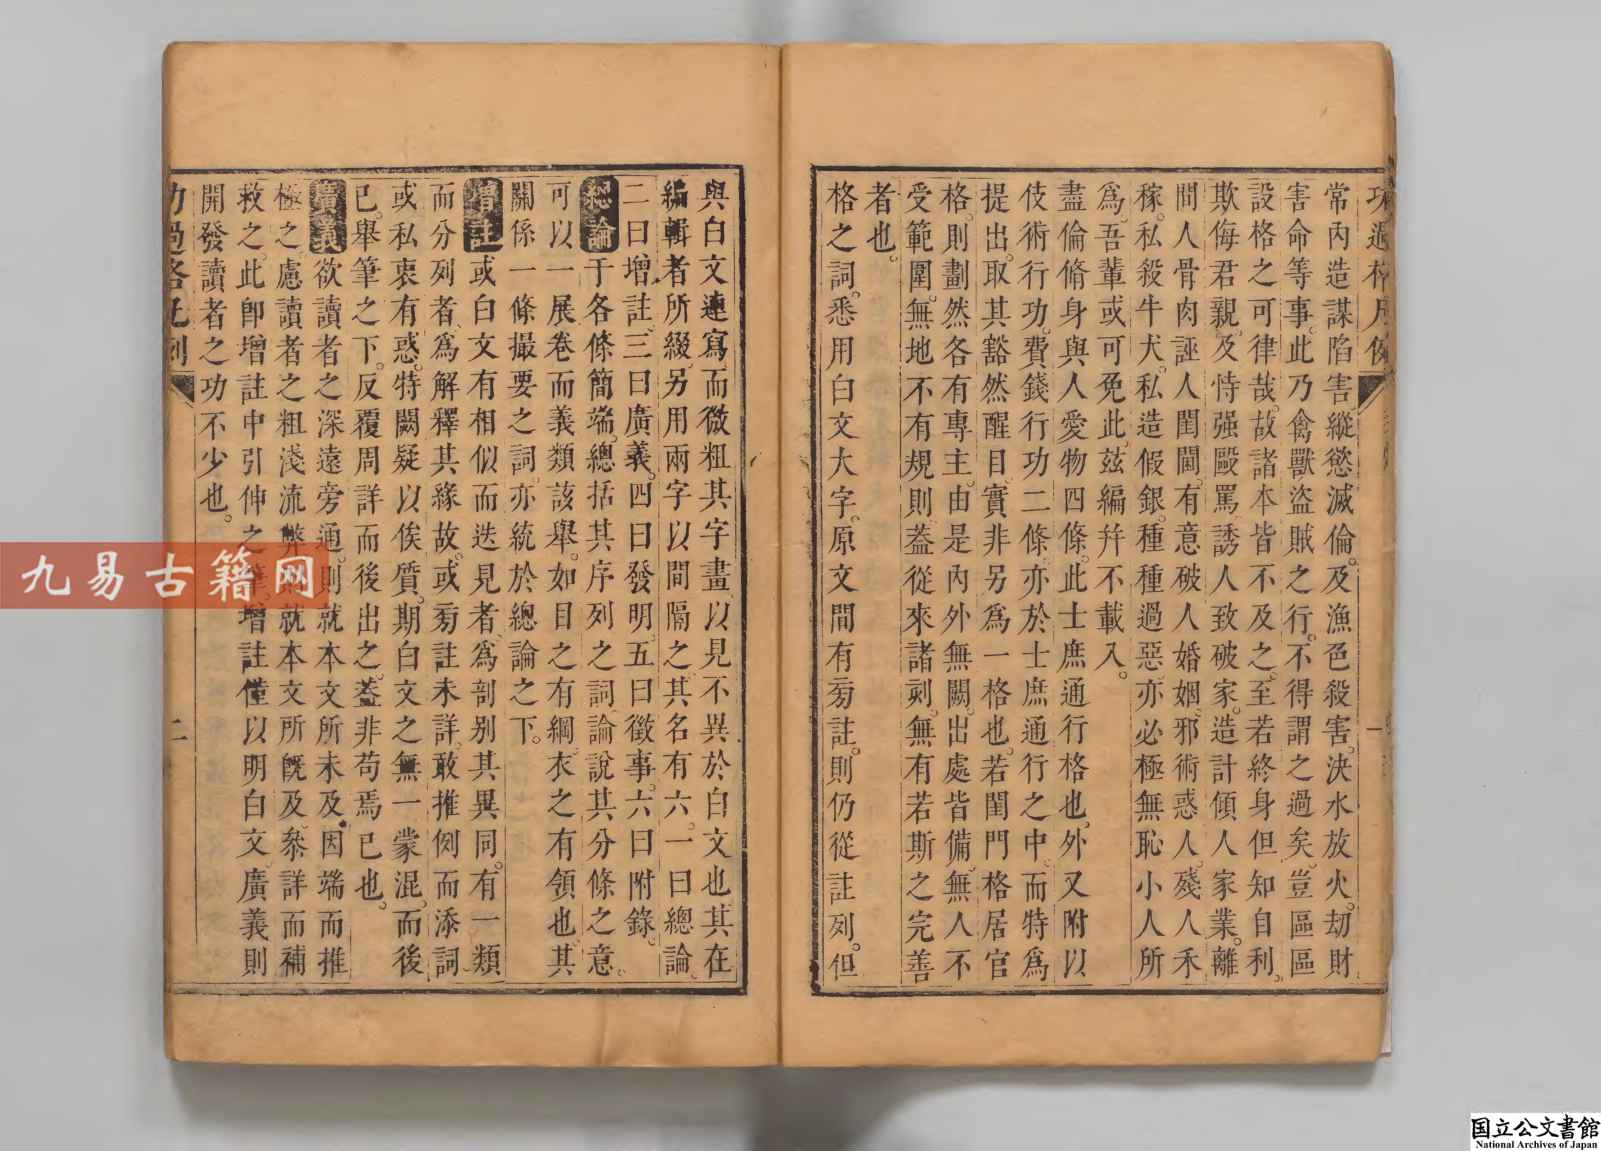 常內造謀陷害縱慾滅倫及漁色殺害決水放火刧財
害命等事此乃禽獸盜賊之行不得謂之過矣豈區區
設格之可律哉故諸本皆不及之至若終身但知自利
欺侮君親及恃强毆罵誘人致破家造計傾人家業離
間人骨肉誣人閨閫有意破人婚姻邪術惑人殘人禾
稼私殺牛犬私造假銀種種過惡亦必極無恥小人所
爲吾輩或可免此玆編幷不載入
盡倫脩身與人愛物四條此士庶通行格也外又附以
伎術行功費錢行功二條亦於士庶通行之中而特爲
提出取其豁然醒目實非另爲一格也若閨門格居官
格則劃然各有專主由是內外無闕出處皆備無人不
受範圍無地不有規則蓋從來諸刻無有若斯之完善
者也
格之詞悉用白文大字原文間有旁註則仍從註列但
與白文連寫而微粗其字畫以見不異於白文也其在
編輯者所綴另用兩字以間隔之其名有六一曰總論
二曰增註三曰廣義四曰發明五曰徵事六曰附錄
總論于各條簡端總括其序列之詞論說其分條之意
可以一展卷而義類該舉如目之有綱衣之有領也其
關係一條撮要之詞亦統於總論之下
增註或白文有相似而迭見者爲剖別其異同有一類
而分列者爲解釋其緣故或旁註未詳敢推例而添詞
或私衷有惑特闕疑以俟質期白文之無一蒙混而後
已舉筆之下反覆周詳而後出之蓋非苟焉已也
廣義欲讀者之深遠旁通則就本文所未及因端而推
極之慮讀者之粗淺流弊則就本文所旣及叅詳而補
救之此卽增註中引伸之筆增註僅以明白文廣義則
開發讀者之功不少也
功過格凡例
二
九易古籍网
国立公文書館
National Archives of Japan